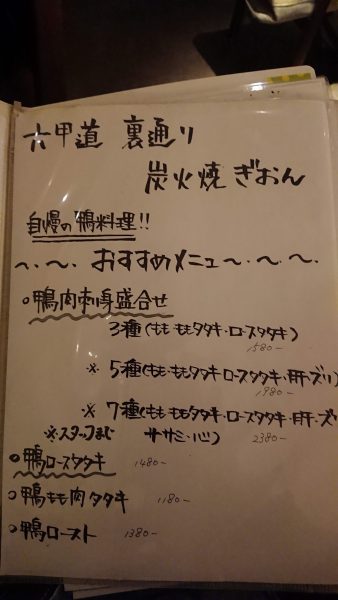 六甲道 裏通り
炭火焼 ぎおん
自慢の鴨料理!!
〜.〜. おすすめメニュー〜.〜.〜.
○鴨肉刺身盛合せ
3種(もも・ももタタキ・ロースタタキ)
1580-
※ 5種(もも・ももタタキ・ロースタタキ・肝・ズリ)
1980-
※ 7種(もも・ももタタキ・ロースタタキ・肝・ズリ
ササミ・心) 2380-
○鴨ロースタタキ 1480-
○鴨もも肉タタキ 1180-
○鴨ロースト 1380-